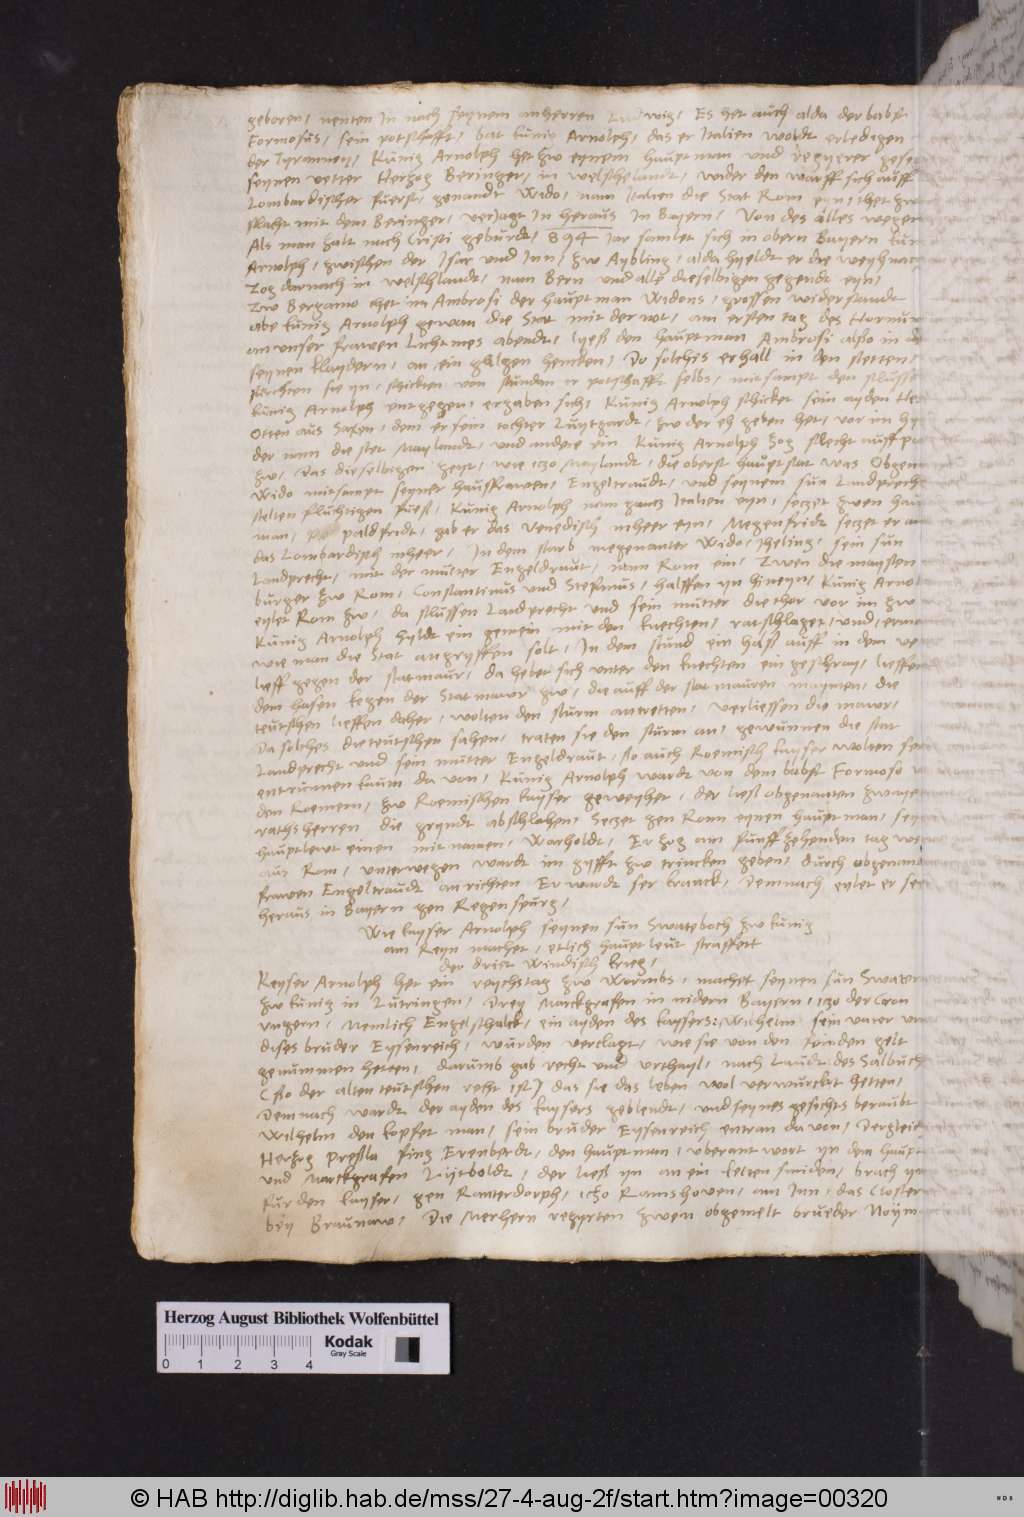 geboren, nenten In nach seynem anherren Ludwig, Es het auch alda der babst
Formosus, sein potschafft, bat kunig Arnolph, das er Italien woldt erledigen
der Tyranney, Kunig Arnolph het zw eynem hauptman und regyerer
seynen vetter Herzog Beringer, in welschelandt, wider den warff sich auff
Lombardischer fuerst, genandt Wido, nam Italien die Stat Rom eyn, thet
slacht mit dem Beringer, verJagt In heraus In Bayern, Von des alles wegen
Als man zalt nach Cristi geburdt, 894 Jar samlet sich in obern Bayern
Arnolph, zwischen der Isar und Inn, zw Aybling, alda hyeldt er die weyhnacht
Zog darnach in welschlandt, nam Bern und alle dieselbigen gegendt eyn,
Zw Bergamo thet im Ambrosi der hauptman Widons, grossen widerstandt
abe kunig Arnolph gewan die Stat mit der not, am ersten tag des Hornung
an unser frawen Lichtmes abendt, lyeß den hauptman Ambrosi also in
seynen klaydern, an ein galgen hencken, Do solchis erhall in den stetten,
forchten sie yn, schickten von stundan ir potschafft selbs, mitsampt den slussel
kunig Arnolph entgegen, ergaben sich, Kunig Arnolph schicket sein ayden
Otten aus Saxen, dem er sein tochter Luytgardt, zw der eh geben het, vor im
der nam die stet Maylandt, und andere ein Kunig Arnolph zog slecht auff
zw, das dieselbigen zeyt, wie itzo Maylandt, die oberst hauptstat was Obgenant
Wido mitsampt seyner hausfrawen, Engeltraudt, und seynem sun Landprecht
stelten fluchtigen fuess, Kunig Arnolph nam gantz Italien eyn, setzet zwen
man, paldfridt, gab er das Venedisch mheer eyn, Megenfridt setzet er an
das Lombardisch mheer, In dem starb megenanter Wido, Iheling, sein sun
Landprecht, mit der mutter Engeldraut, nam Rom ein, Zwen die maysten
burger zw Rom, Constantinus und Stefanus, halffen yn hineyn, Kunig Arnolph
eylet Rom zw, da slussen Landprecht und sein mutter die thor vor im zw
Kunig Arnolph hyldt ein gemein mit den knechten, ratschlaget, und
wie man die Stat angryffen solt, In dem stund ein haß auff in dem
lieff gegen der statmaur, da hebet sich unter den knechten ein geschray, lieffen
dem hasen kegen der Statmawr zw, die auff der statmauren maynten, die
teutschen lieffen daher, wolten den sturm antretten, verliessen die mawr,
Da solches die teutschen sahen, traten sie den sturm an, gewunnen die stat
Landprecht und sein mutter Engeldraut, so auch Roemisch kayser wolten
entrunnen kaum da von, Kunig Arnolph wardt von dem babst Formoso
den Roemern, zw Roemischen kayser geweyhet, der ließ obgenanten zwayen
rathsherren die gryndt abschlahen, Setzet gen Rom eynen hauptman,
hauptlewt einen mit namen, Warholdt, Er zog am funffzehenden tag
aus Rom, unterwegen wardt im gyfft zw trincken geben, durch obgenante
frawen Engeltraudt anrichten Er wardt ser kranck, Demnach eylet er
heraus in Bayern gen Regenspurg,
Wie kayser Arnolph seynen sun Swateboch zw kunig
am Reyn machet, etlich hauptleut straffett
der drit Windisch krieg,
Keyser Arnolph het ein reychstag zw Wormbs, machet seynen sun
zw kunig in Lutringen, Drey Marckgrafen in nidern Bayern, itzo der Cron
Ungern, Nemlich Engelschalck, ein ayden des kaysers, Wilhelm sein vater
dises bruder Eysenreich, wurden verclagt, wie sie von den feinden gelt
genummen hetten, darumb gab recht und urthayl, nach Laudt des Salbuch
(so der alten teutschen recht ist) das sie das leben wol verwurckt hetten,
Demnach wardt der ayden des kaysers geblendt, und seynes gesichts beraubt
Wilhelm den kopfet man, sein bruder Eysenreich entran davon,
Herzog Presla fing Erenberdt, den hauptman, uberantwort yn dem
und Marckgrafen Luytboldt, der ließ yn an ein ketten smiden, brach yn
fur den kayser, gen Ranterdorph, itzo Ranshoven, am Inn, das Closter
bey Braunaw, Die Merhern regyrten zwen obgemelt brueder
Herzog August Bibliothek Wolfenbüttel
Kodak
Gray Scale
0 1 2 3 4
© HAB http://diglib.hab.de/mss/27-4-aug-2f/start.htm?image=00320